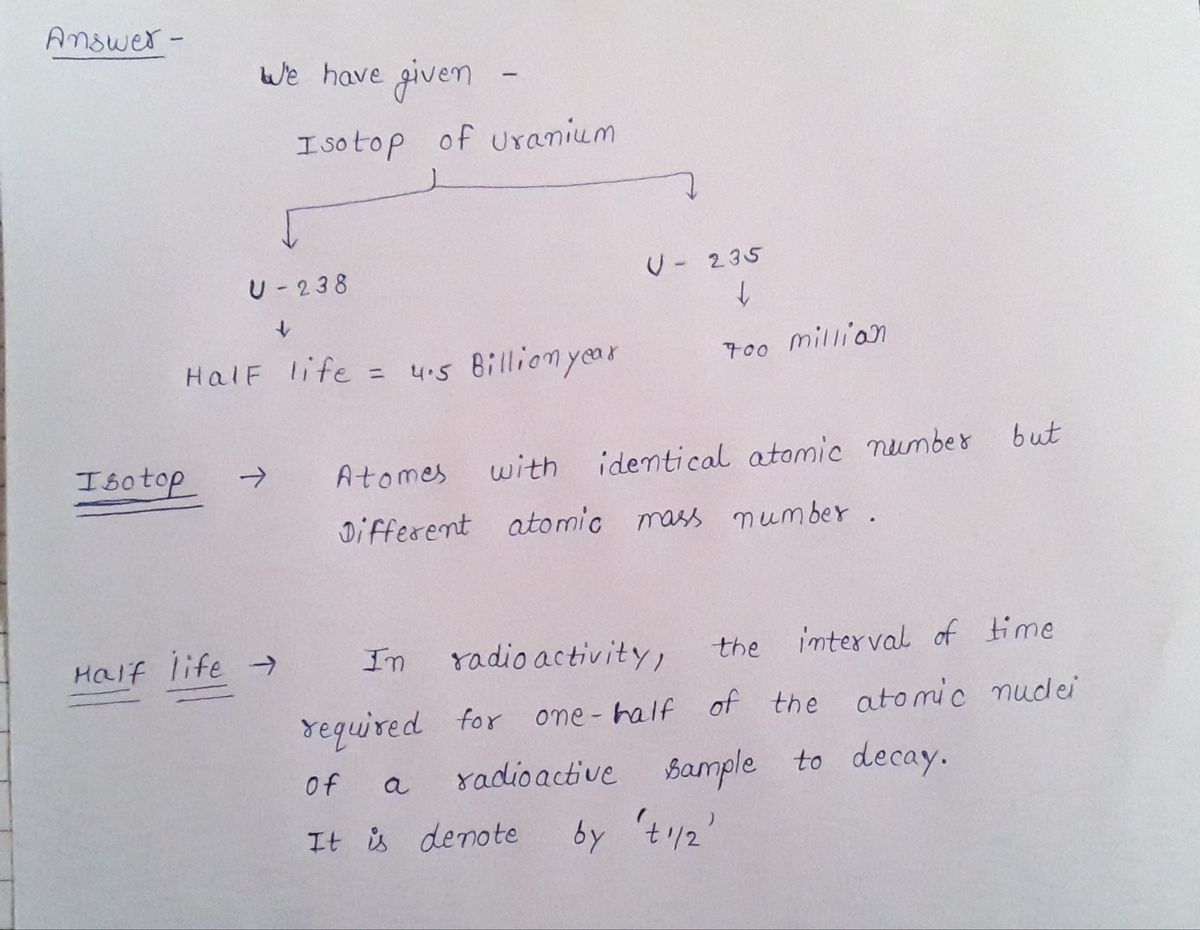 Answer -
We have given -
Isotop of uranium
U - 238
U - 235
Half life = 4.5 Billion year
700 million
Isotop → Atomes with identical atomic number but
Different atomic mass number .
Half life → In radioactivity, the interval of time
required for one-half of the atomic nuclei
of a radioactive sample to decay.
It is denote by 't1/2'